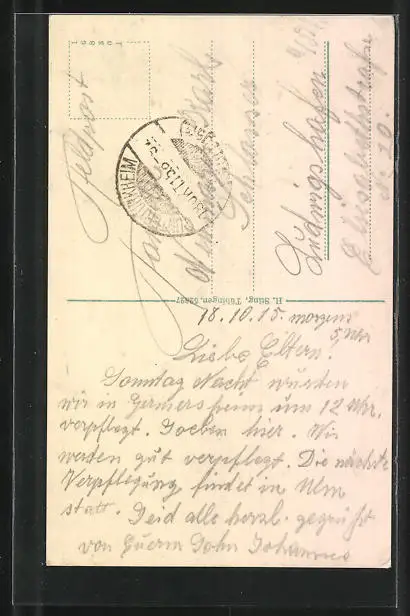 Feldpost
Karl
Schlosser
Ludwigshafen
No 10.
H. Sting, Tübingen. 52897
18.10.15. morgens
5 Uhr
Liebe Eltern!
Sonntag Nacht wurden
wir in Germersheim um 12 Uhr.
verpflegt. Soeben hier. Wir
werden gut verpflegt. Die nächste
Verpflegung findet in Ulm
statt. Seid alle herzl. gegrüßt
von Euerm Sohn Johannes